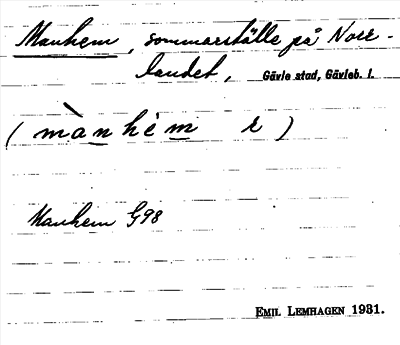 Manhem, sommarställe på Norr-
landet, Gävle stad, Gävleb. l.
(mànhèm r)
Manhem G98
EMIL LEMHAGEN 1931.